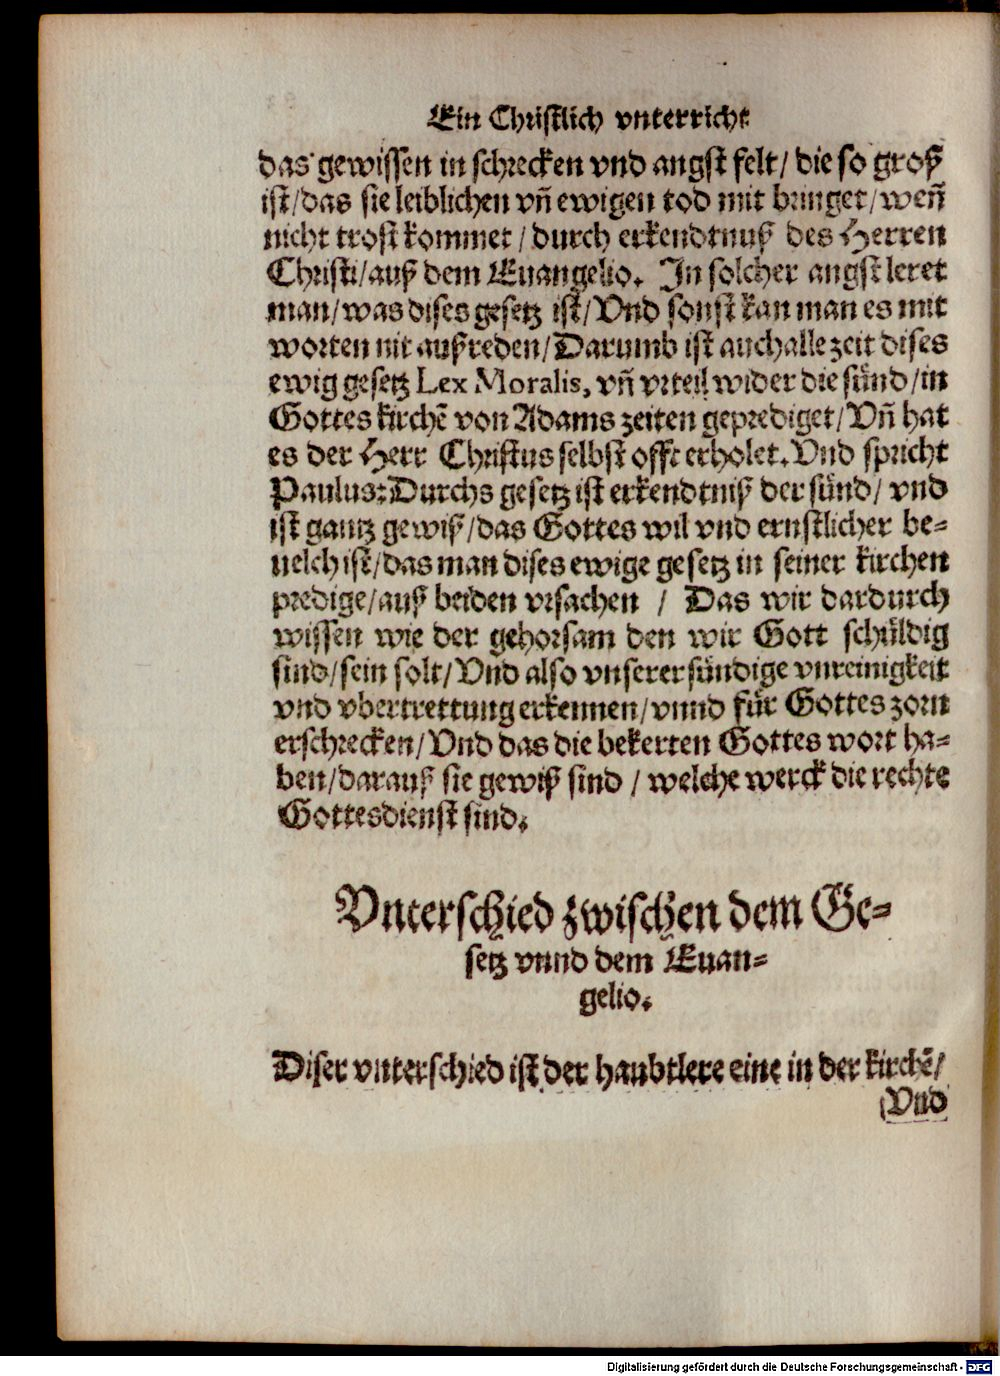 Ein Christlich vnterricht
das gewissen in schrecken vnd angst felt/ die so groß
ist/das sie leiblichen vñ ewigen tod mit bringet/weñ
nicht trost kommet/durch erkendtnuß des Herren
Christi/auß dem Euangelio. In solcher angst leret
man/was dises gesetz ist/Vnd sonst kan man es mit
worten nit außreden/Darumb ist auch alle zeit dises
ewig gesetz Lex Moralis, vñ vrteil wider die sünd/in
Gottes kirchẽ von Adams zeiten geprediget/Vñ hat
es der Herr Christus selbst offt erholet. Vnd spricht
Paulus: Durchs gesetz ist erkendtniß der sünd/ vnd
ist gantz gewiß/das Gottes wil vnd ernstlicher be-
uelch ist/das man dises ewige gesetz in seiner kirchen
predige/auß beiden vrsachen / Das wir dardurch
wissen wie der gehorsam den wir Gott schüldig
sind/sein solt/Vnd also vnserer sündige vnreinigkeit
vnd vbertrettung erkennen/vnnd für Gottes zorn
erschrecken/Vnd das die bekerten Gottes wort ha-
ben/darauß sie gewiß sind / welche werck die rechte
Gottesdienst sind.
Vnterschied zwischen dem Ge-
setz vnnd dem Euan-
gelio.
Diser vnterschied ist der haubtlere eine in der kirchẽ/
(Vnd
Digitalisierung gefördert durch die Deutsche Forschungsgemeinschaft - DFG